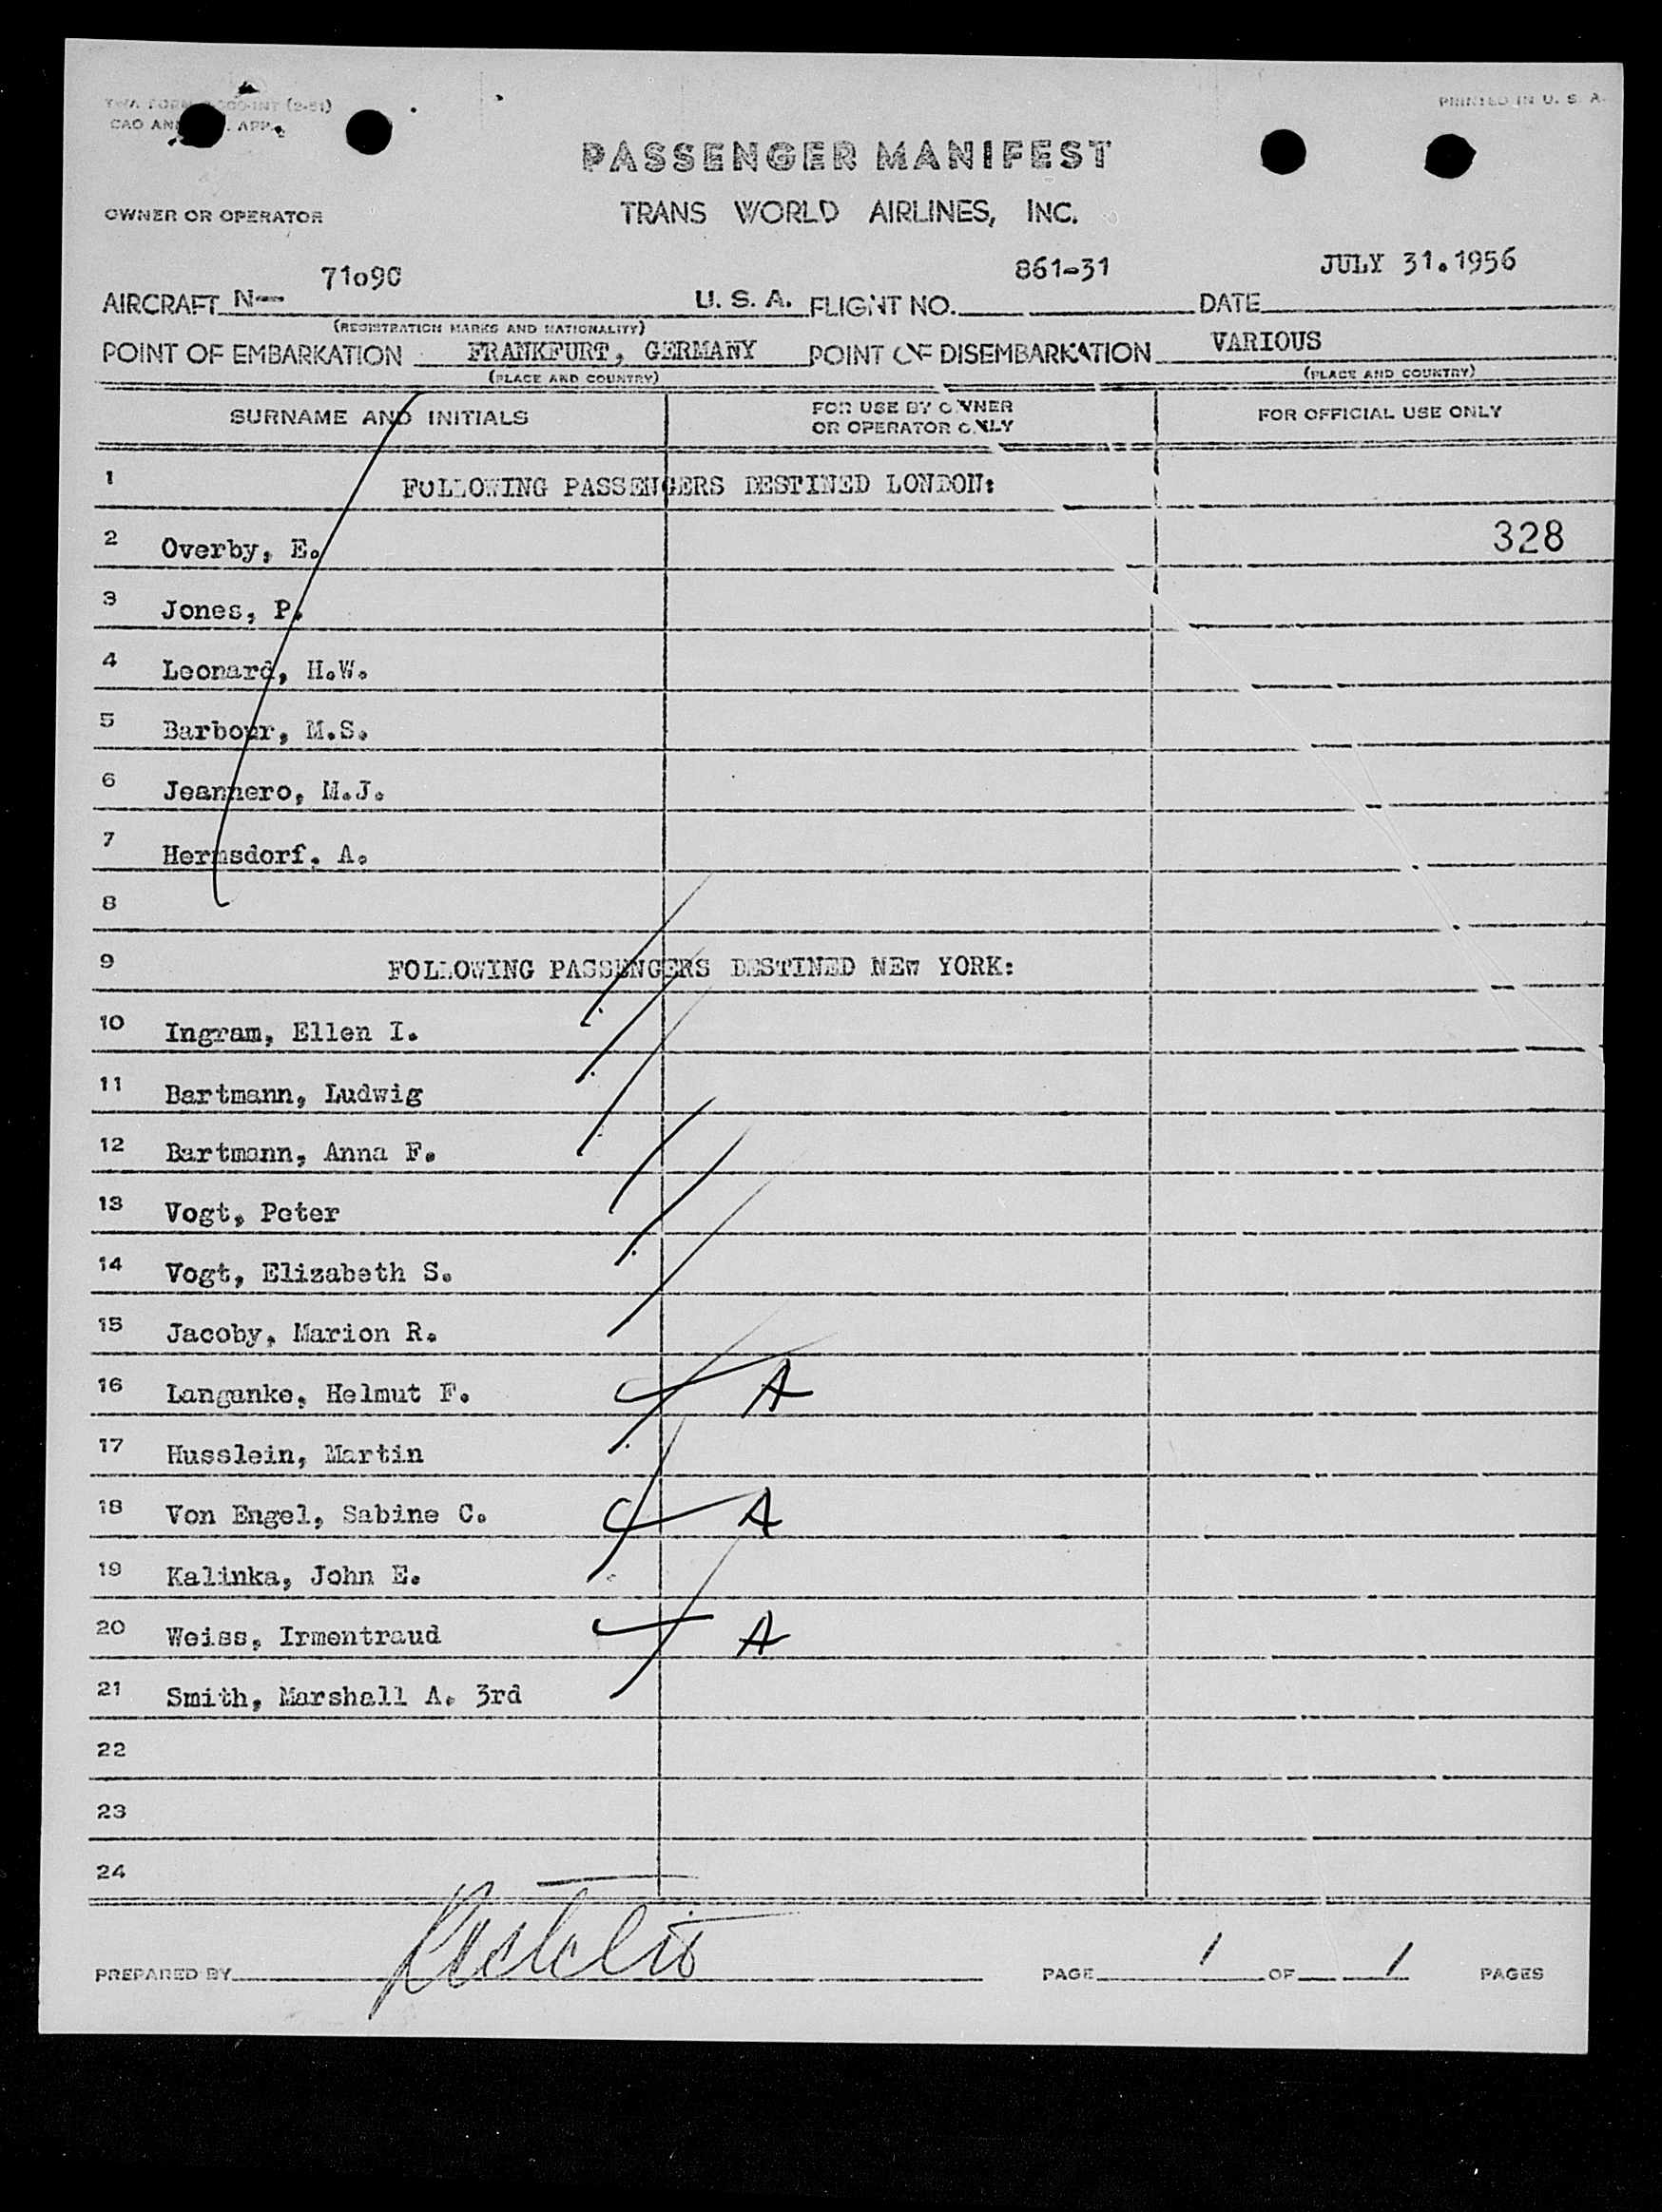 TWA FORM
(2-51)
PRINTED IN U. S. A.
PASSENGER MANIFEST
OWNER OR OPERATOR TRANS WORLD AIRLINES, INC.
AIRCRAFT N-- 7109C U. S. A. FLIGHT NO. 861-31 DATE JULY 31.1956
(REGISTRATION MARKS AND NATIONALITY)
POINT OF EMBARKATION FRANKFURT, GERMANY POINT OF DISEMBARKATION VARIOUS
(PLACE AND COUNTRY) (PLACE AND COUNTRY)
SURNAME AND INITIALS FOR USE BY OWNER OR OPERATOR ONLY FOR OFFICIAL USE ONLY
1 FOLLOWING PASSENGERS DESTINED LONDON:
2 Overby, E. 328
3 Jones, P.
4 Leonard, H.W.
5 Barbour, M.S.
6 Jeannero, M.J.
7 Hermsdorf, A.
8
9 FOLLOWING PASSENGERS DESTINED NEW YORK:
10 Ingram, Ellen I.
11 Bartmann, Ludwig
12 Bartmann, Anna F.
13 Vogt, Peter
14 Vogt, Elizabeth S.
15 Jacoby, Marion R.
16 Langanke, Helmut F. A
17 Husslein, Martin
18 Von Engel, Sabine C. A
19 Kalinka, John E.
20 Weiss, Irmentraud A
21 Smith, Marshall A. 3rd
22
23
24
PREPARED BY PAGE 1 OF 1 PAGES